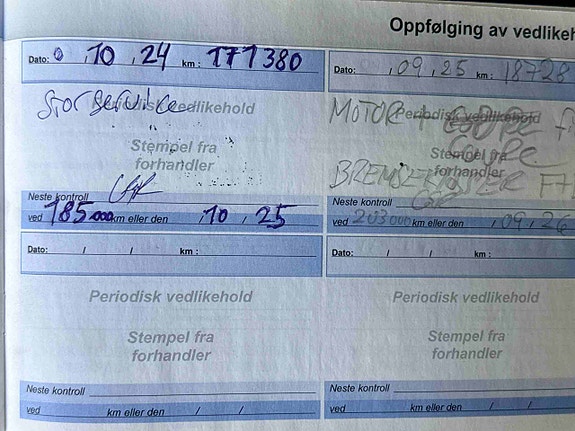 Oppfølging av vedlikeh
Dato: 0 , 10 , 24 km : 171380
Stor service
Periodisk vedlikehold
Stempel fra
forhandler
Neste kontroll
ved 185000 km eller den , 10 , 25
Dato: , 09 , 25 km : 18728
MOTOR +
Periodisk vedlikehold
Stempel fra
forhandler
BREMSEKLOSSER
Neste kontroll
ved 203000 km eller den / 09 / 26
Dato: / / km :
Periodisk vedlikehold
Stempel fra
forhandler
Neste kontroll
ved km eller den / /
Dato: / / km :
Periodisk vedlikehold
Stempel fra
forhandler
Neste kontroll
ved km eller den / /